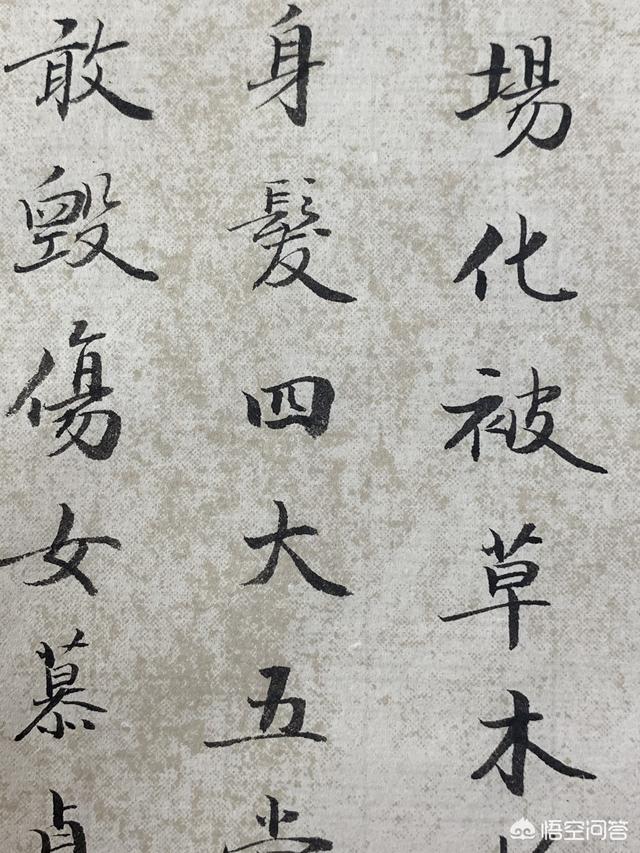 場化被草木
身髮四大五常
敢毀傷女慕貞
悟空问答